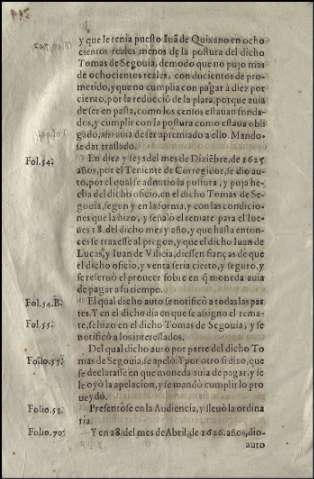 y que le tenia puesto Iuã de Quixano en ocho
cientos reales menos de la postura del dicho
Tomas de Segouia, demodo que no pujo mas
de ochocientos reales, con ducientos de pro-
metido, y que no cumplia con pagar à diez por
ciento, por la reducciõ de la plata, porque auia
de ser en pasta, como los censos estauan funda-
dos, y cumplir con la postura como estaua obli-
gado, auia de ser apremiado a ello. Mando-
se dar traslado.
Fol. 54. En diez y seys del mes de Diziẽbre, de 1625
años, por el Teniente de Corregidor, se dio au-
to, por el qual se admitio la postura, y puja he-
cha del dicho oficio, en el dicho Tomas de Se-
gouia, segun y en la forma, y con las condicio-
nes que la hizo, y señalo el remate para el
18. del dicho mes y año, y que hasta enton-
ces se traxesse al pregon, y que el dicho Iuan de
Lucas, y Iuan de diessen fianças de que
el dicho oficio, y venta seria cierto, y seguro, y
se reseruò el proueer sobre en q̃ moneda auia
de pagar a su tiempo.
Fol. 54. B. El qual dicho auto se notificò a todas las par-
tes. Y en el dicho dia en que se assigno el rema-
Fol. 55. te, se hizo en el dicho Tomas de Segouia, y se
notificò a los interessados.
Del qual dicho auto por parte del dicho To
Folio. 57. mas de Segouia, se apelò. Y por otro si dixo, que
se declarasse en que moneda auia de pagar, y se
le oyò la apelacion, y se mandò cumplir lo pro
ueydo.
Folio. 58. Presentòse en la Audiencia, y lleuò la ordina
ria.
Folio. 70. Y en 28. del mes de Abril, de 1626. años, dio-
auto